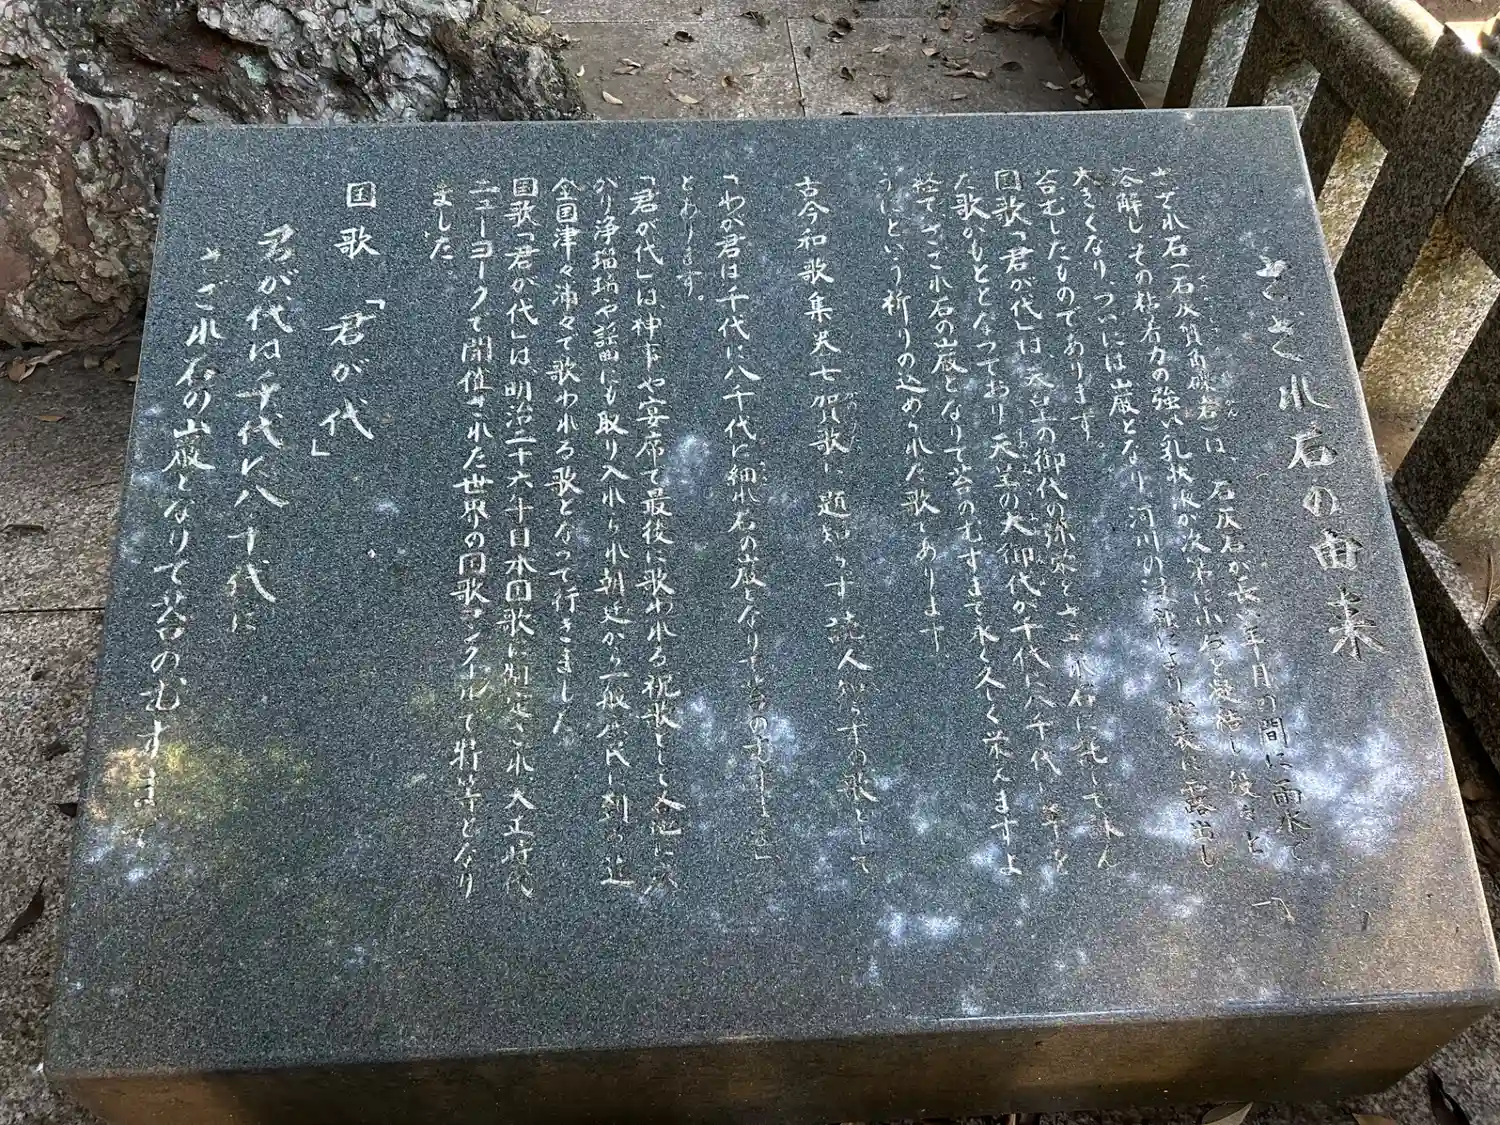 さざれ石の由来
さざれ石(石灰質角礫岩)は、石灰石が長い年月の間に雨水で
溶解しその粘着力の強い乳状液が次第に小石を凝結し段々と
大きくなり、ついには巌となり河川の により に露出し
苔むしたものであります。
国歌「君が代」は、天皇の御代の弥栄をさざれ石に託して詠ん
だ歌がもととなっており天皇の大御代が千代に八千代に幸を
経てさざれ石の巌となりて苔のむすまで永く久しく栄えますよ
うにという祈りの込められた歌であります
古今和歌集巻七賀歌に題知らず読人知らずの歌として
「わが君は千代に八千代に細れ石の巌となりて苔のむすまで」
とあります。
「君が代」は、神事や宴席で最後に歌われる祝歌として各地に広
がり浄瑠璃や謡曲にも取り入れられ朝廷から一般庶民に到る迄
全国津々浦々で歌われる歌となって行きました
国歌「君が代」は、明治二十六年日本国歌に制定され大正時代
ニューヨークで開催された世界の国歌コンクールで特等となり
ました
国歌「君が代」
君が代は千代に八千代に
さざれ石の巌となりて苔のむすまで